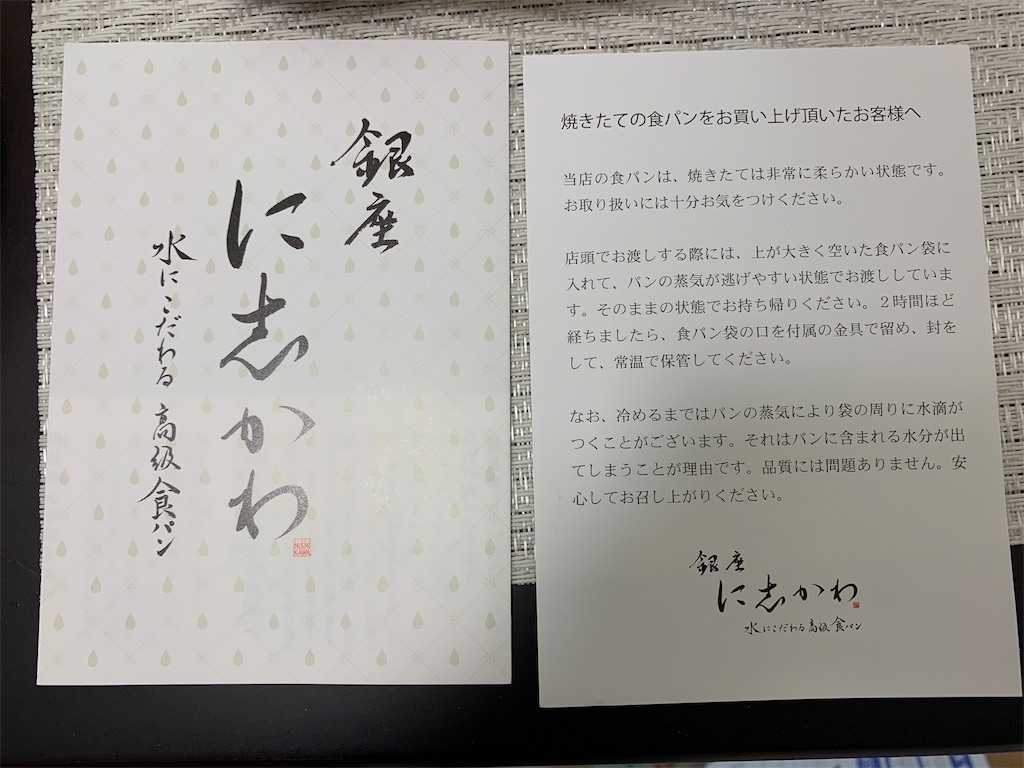 銀座
に志かわ
水にこだわる 高級食パン
NISHI
KAWA
焼きたての食パンをお買い上げ頂いたお客様へ
当店の食パンは、焼きたては非常に柔らかい状態です。
お取り扱いには十分お気をつけください。
店頭でお渡しする際には、上が大きく空いた食パン袋に
入れて、パンの蒸気が逃げやすい状態でお渡ししていま
す。そのままの状態でお持ち帰りください。２時間ほど
経ちましたら、食パン袋の口を付属の金具で留め、封を
して、常温で保管してください。
なお、冷めるまではパンの蒸気により袋の周りに水滴が
つくことがございます。それはパンに含まれる水分が出
てしまうことが理由です。品質には問題ありません。安
心してお召し上がりください。
銀座
に志かわ
水にこだわる高級食パン